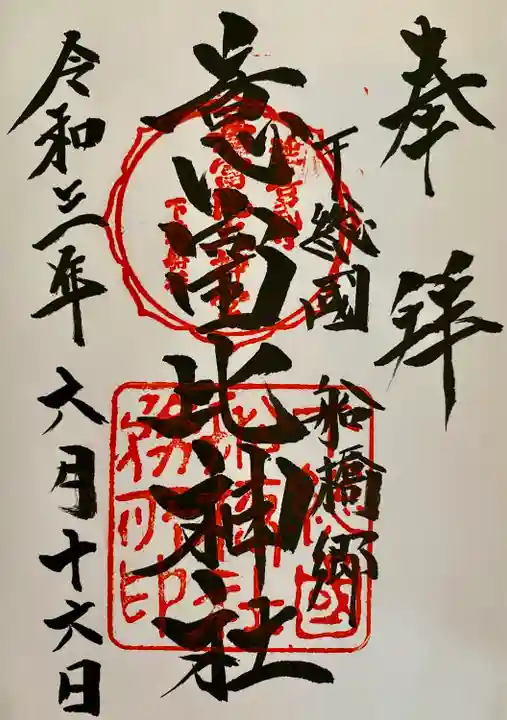 奉拝
下総國 船橋郷
意富比神社
令和三年 六月十六日